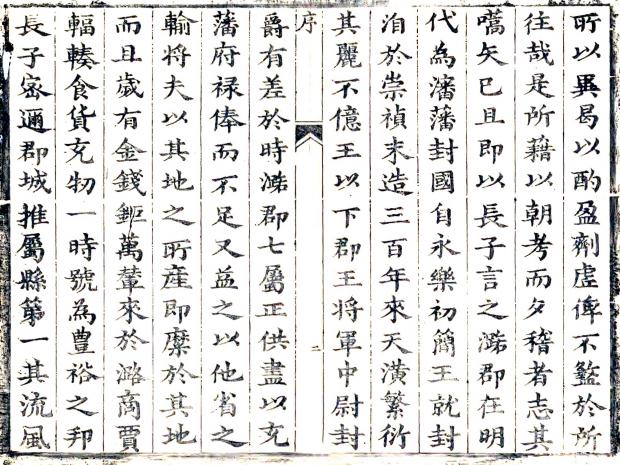 所以異曷以酌盈劑虛俾不盭於所
往哉是所藉以朝考而夕稽者志其
嚆矢已且即以長子言之潞郡在明
代為瀋藩封國自永樂初簡王就封
洎於崇禎末造三百年來天潢繁衍
其麗不億王以下郡王將軍中尉封
序
二
爵有差於時潞郡七屬正供盡以充
藩府禄俸而不足又益之以他省之
輸將夫以其地之所產即縻於其地
而且歲有金錢鉅萬輦來於潞商賈
輻輳食貨充牣一時號為豐裕之邦
長子密邇郡城推屬縣第一其流風